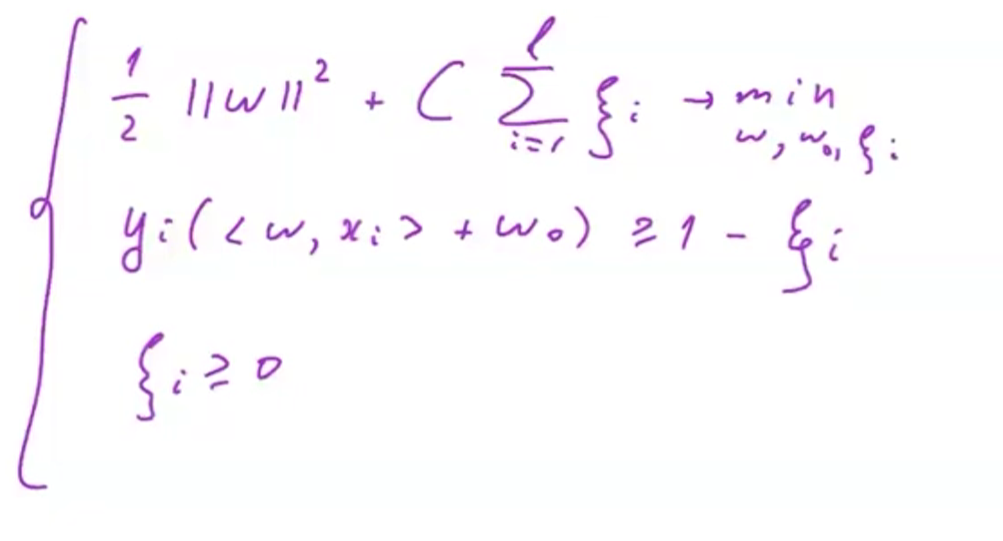 1/2 ||w||² + C ∑_{i=1}^{ℓ} ξ_i → min_{w, w₀, ξ_i}
y_i(<w, x_i> + w₀) ≥ 1 - ξ_i
ξ_i ≥ 0